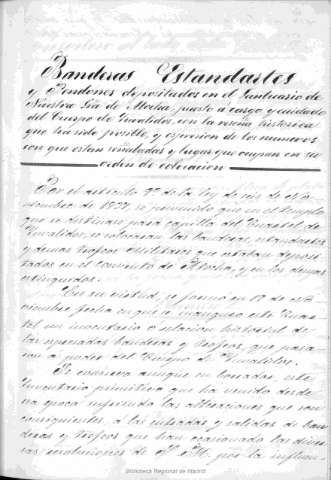 Banderas Estandartes
y Pendones depositados en el Santuario de
Nuestra Sra de Atocha, puesto á cargo y cuidado
del Cuerpo de Inválidos, con la reseña historica
que há sido posible, y expresion de los numeros
con que estan señalados y lugar que ocupan en su
orden de colocacion
Por el articulo 9º de la ley de seis de No-
viembre de 1837 se previno que en el templo
que se destinare para capilla del Cuartel de
Inválidos, se colocaran las banderas, estandartes
y demas trofeos militares que estaban deposi-
tados en el convento de Atocha, y en los demas
extinguidos.
En su virtud, se formó en 19 de
fecha en que se inauguró este Cuar-
tel un inventario ó relacion historial de
las espresadas banderas y trofeos, que pasa-
ron á poder del Cuerpo de Inválidos.
Se conserva aunque en borrador, este
inventario primitivo que ha venido desde
esa epoca sufriendo las alteraciones que son
consiguientes, á las entradas y salidas de ban-
deras y trofeos que han ocasionado las diver-
sas por la
Biblioteca Regional de Madrid